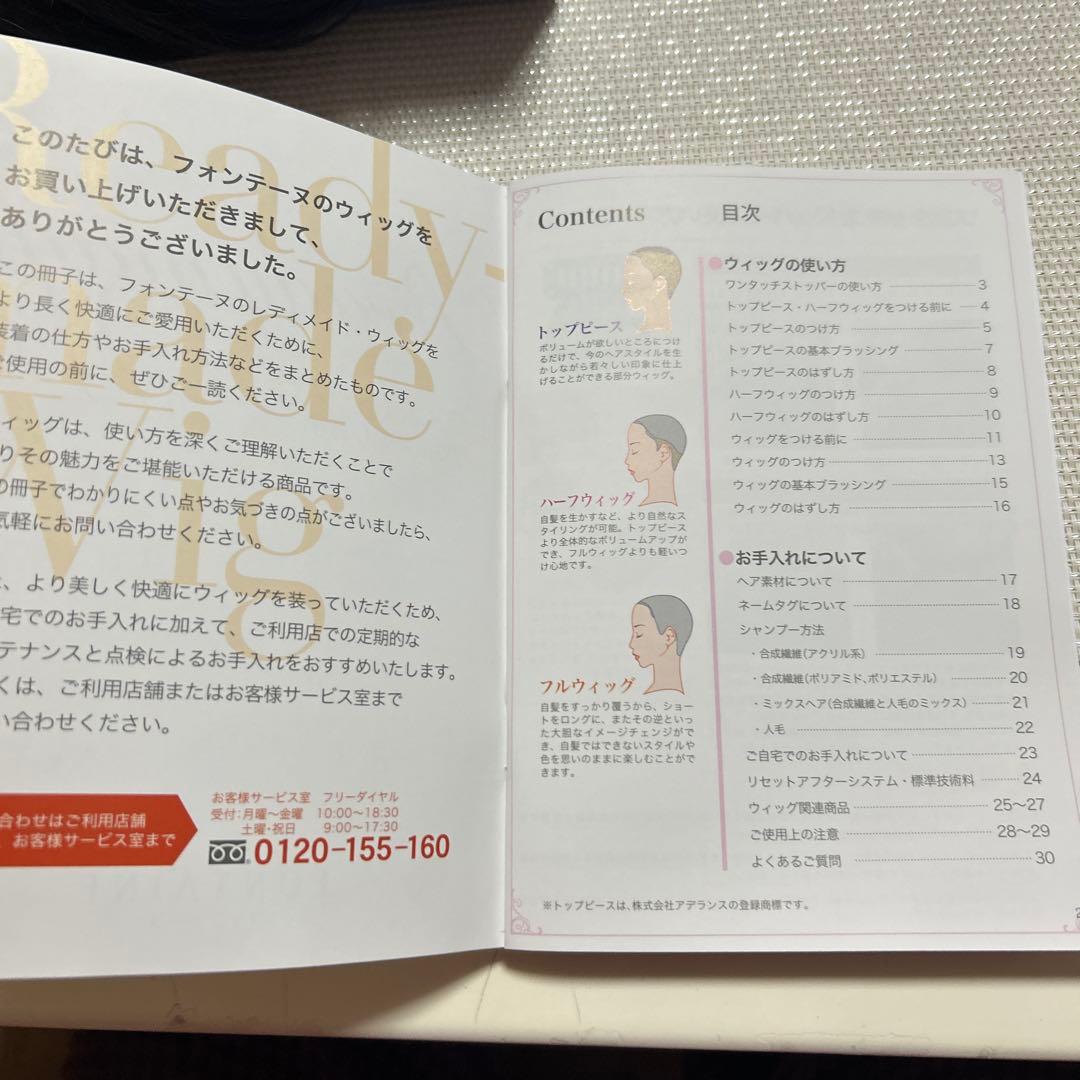 Ready-
made
Wig
このたびは、フォンテーヌのウィッグを
お買い上げいただきまして、
ありがとうございました。
この冊子は、フォンテーヌのレディメイド・ウィッグを
より長く快適にご愛用いただくために、
装着の仕方やお手入れ方法などをまとめたものです。
ご使用の前に、ぜひご一読ください。
ィッグは、使い方を深くご理解いただくことで
りその魅力をご堪能いただける商品です。
の冊子でわかりにくい点やお気づきの点がございましたら、
気軽にお問い合わせください。
、より美しく快適にウィッグを装っていただくため、
宅でのお手入れに加えて、ご利用店での定期的な
テナンスと点検によるお手入れをおすすめいたします。
くは、ご利用店舗またはお客様サービス室まで
い合わせください。
合わせはご利用店舗
お客様サービス室まで
お客様サービス室 フリーダイヤル
受付:月曜〜金曜 10:00〜18:30
土曜・祝日 9:00〜17:30
0120-155-160
Contents 目次
トップピース
ボリュームが欲しいところにつけ
るだけで、今のヘアスタイルを生
かしながら若々しい印象に仕上
げることができる部分ウィッグ。
ハーフウィッグ
自髪を生かすなど、より自然なス
タイリングが可能。トップピース
より全体的なボリュームアップが
でき、フルウィッグよりも軽いつ
け心地です。
フルウィッグ
自髪をすっかり覆うから、ショー
トをロングに、またその逆といっ
た大胆なイメージチェンジがで
き、自髪ではできないスタイルや
色を思いのままに楽しむことがで
きます。
●ウィッグの使い方
ワンタッチストッパーの使い方 3
トップピース・ハーフウィッグをつける前に 4
トップピースのつけ方 5
トップピースの基本ブラッシング 7
トップピースのはずし方 8
ハーフウィッグのつけ方 9
ハーフウィッグのはずし方 10
ウィッグをつける前に 11
ウィッグのつけ方 13
ウィッグの基本ブラッシング 15
ウィッグのはずし方 16
●お手入れについて
ヘア素材について 17
ネームタグについて 18
シャンプー方法
・合成繊維(アクリル系) 19
・合成繊維(ポリアミド、ポリエステル) 20
・ミックスヘア(合成繊維と人毛のミックス) 21
・人毛 22
ご自宅でのお手入れについて 23
リセットアフターシステム・標準技術料 24
ウィッグ関連商品 25〜27
ご使用上の注意 28〜29
よくあるご質問 30
※トップピースは、株式会社アデランスの登録商標です。
2